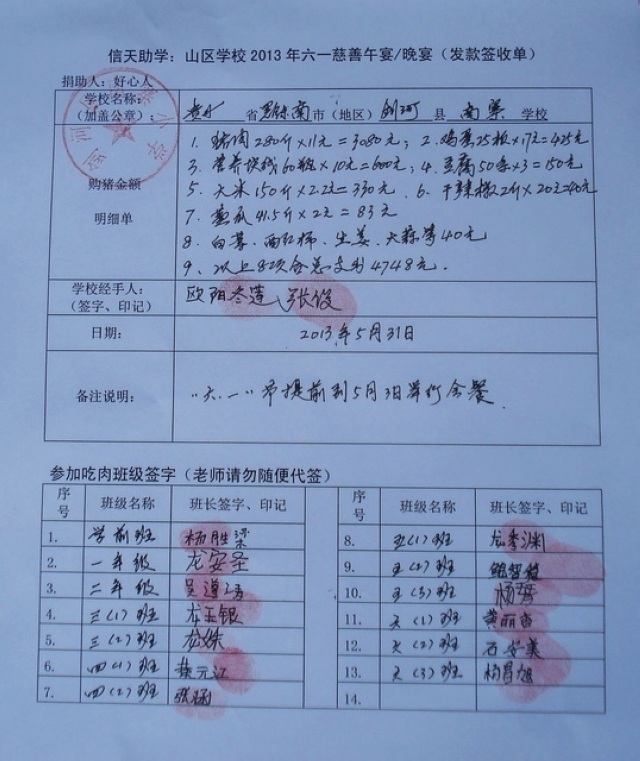 信天助学：山区学校2013年六一慈善午宴/晚宴（发款签收单）
捐助人：好心人
学校名称：
（加盖公章）：
贵州 省 黔东南 市（地区） 剑河 县 南寨 学校
购猪金额
明细单
1. 猪肉280斤×11元=3080元；2.鸡蛋25板×17元=425元
3. 营养快线60瓶×10元=600元；4.豆腐50条×3=150元
5. 大米150斤×2.2元=330元．6.干辣椒2斤×20元=40元
7. 黄瓜41.5斤×2元=83元
8. 白菜、西红柿、生姜、大蒜等40元
9、以上8项合总支为4748元．
学校经手人：
（签字、印记）
欧阳冬莲、张俊
日期：
2013年5月31日
备注说明：
"六．一"节提前到5月31日举行会餐．
参加吃肉班级签字（老师请勿随便代签）
序号 班级名称 班长签字、印记 序号 班级名称 班长签字、印记
1. 学前班 杨胜 8. 五（1）班 龙季渊
2. 一年级 龙安圣 9. 五（2）班
3. 二年级 吴 10. 五（3）班 杨
4. 三（1）班 龙玉银 11. 六（1）班 黄丽
5. 三（2）班 龙姝 12. 六（2）班 石安美
6. 四（1）班 元江 13. 六（3）班 杨昌旭
7. 四（2）班 张涵 14.